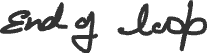 End of loop